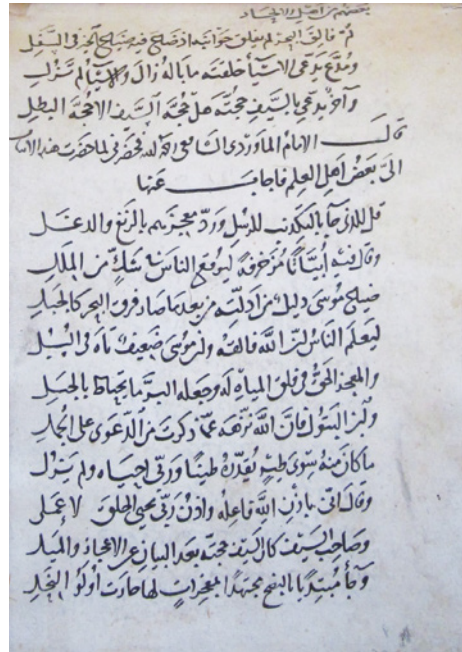 بعضهم من اهل الالحاد
لم فالق البحر لم يغلق جوانبه اذ ضاع فيه ضياع الحبر في السفل
ومدع يدعي الاشيا خلقته ما باله زال والاشيا لم تزل
واخر يدعي بالسيف حجته هل حجة السيف الا حجة البطل
قال الامام الماوردي الشافعي رحمه الله فحضرني لما حضرت هذه الابيات
الى بعض اهل العلم فاجاب عنها
قل للذي جا بالتكذيب للرسل ورد معجزهم بالزيغ والدغل
وقال فيه ابياتا مزخرفة ليوقع الناس في شك من الملل
ضياع موسى دليل من ادلته من بعد ما صار فرق البحر كالجبل
ليعلم الناس ان الله فالقه وان موسى ضعيف تاه في السبل
والمعجز الحق في فلق المياه له وجعله البر ما يحتاط بالحيل
وابن البتول فان الله نزهه عما ذكرت من الدعوى على الجمل
ما كان منه سوى طير يقدره طينا وربي احياه ولم يزل
وقال اني باذن الله فاعله واذن ربي يحيي الخلق لا عملي
وصاحب السيف كان السيف حجته بعد البيان عن الاعجاز والمثل
وجا مبتديا بالنصح مجتهدا بمعجزات لها حارت اولو النحل